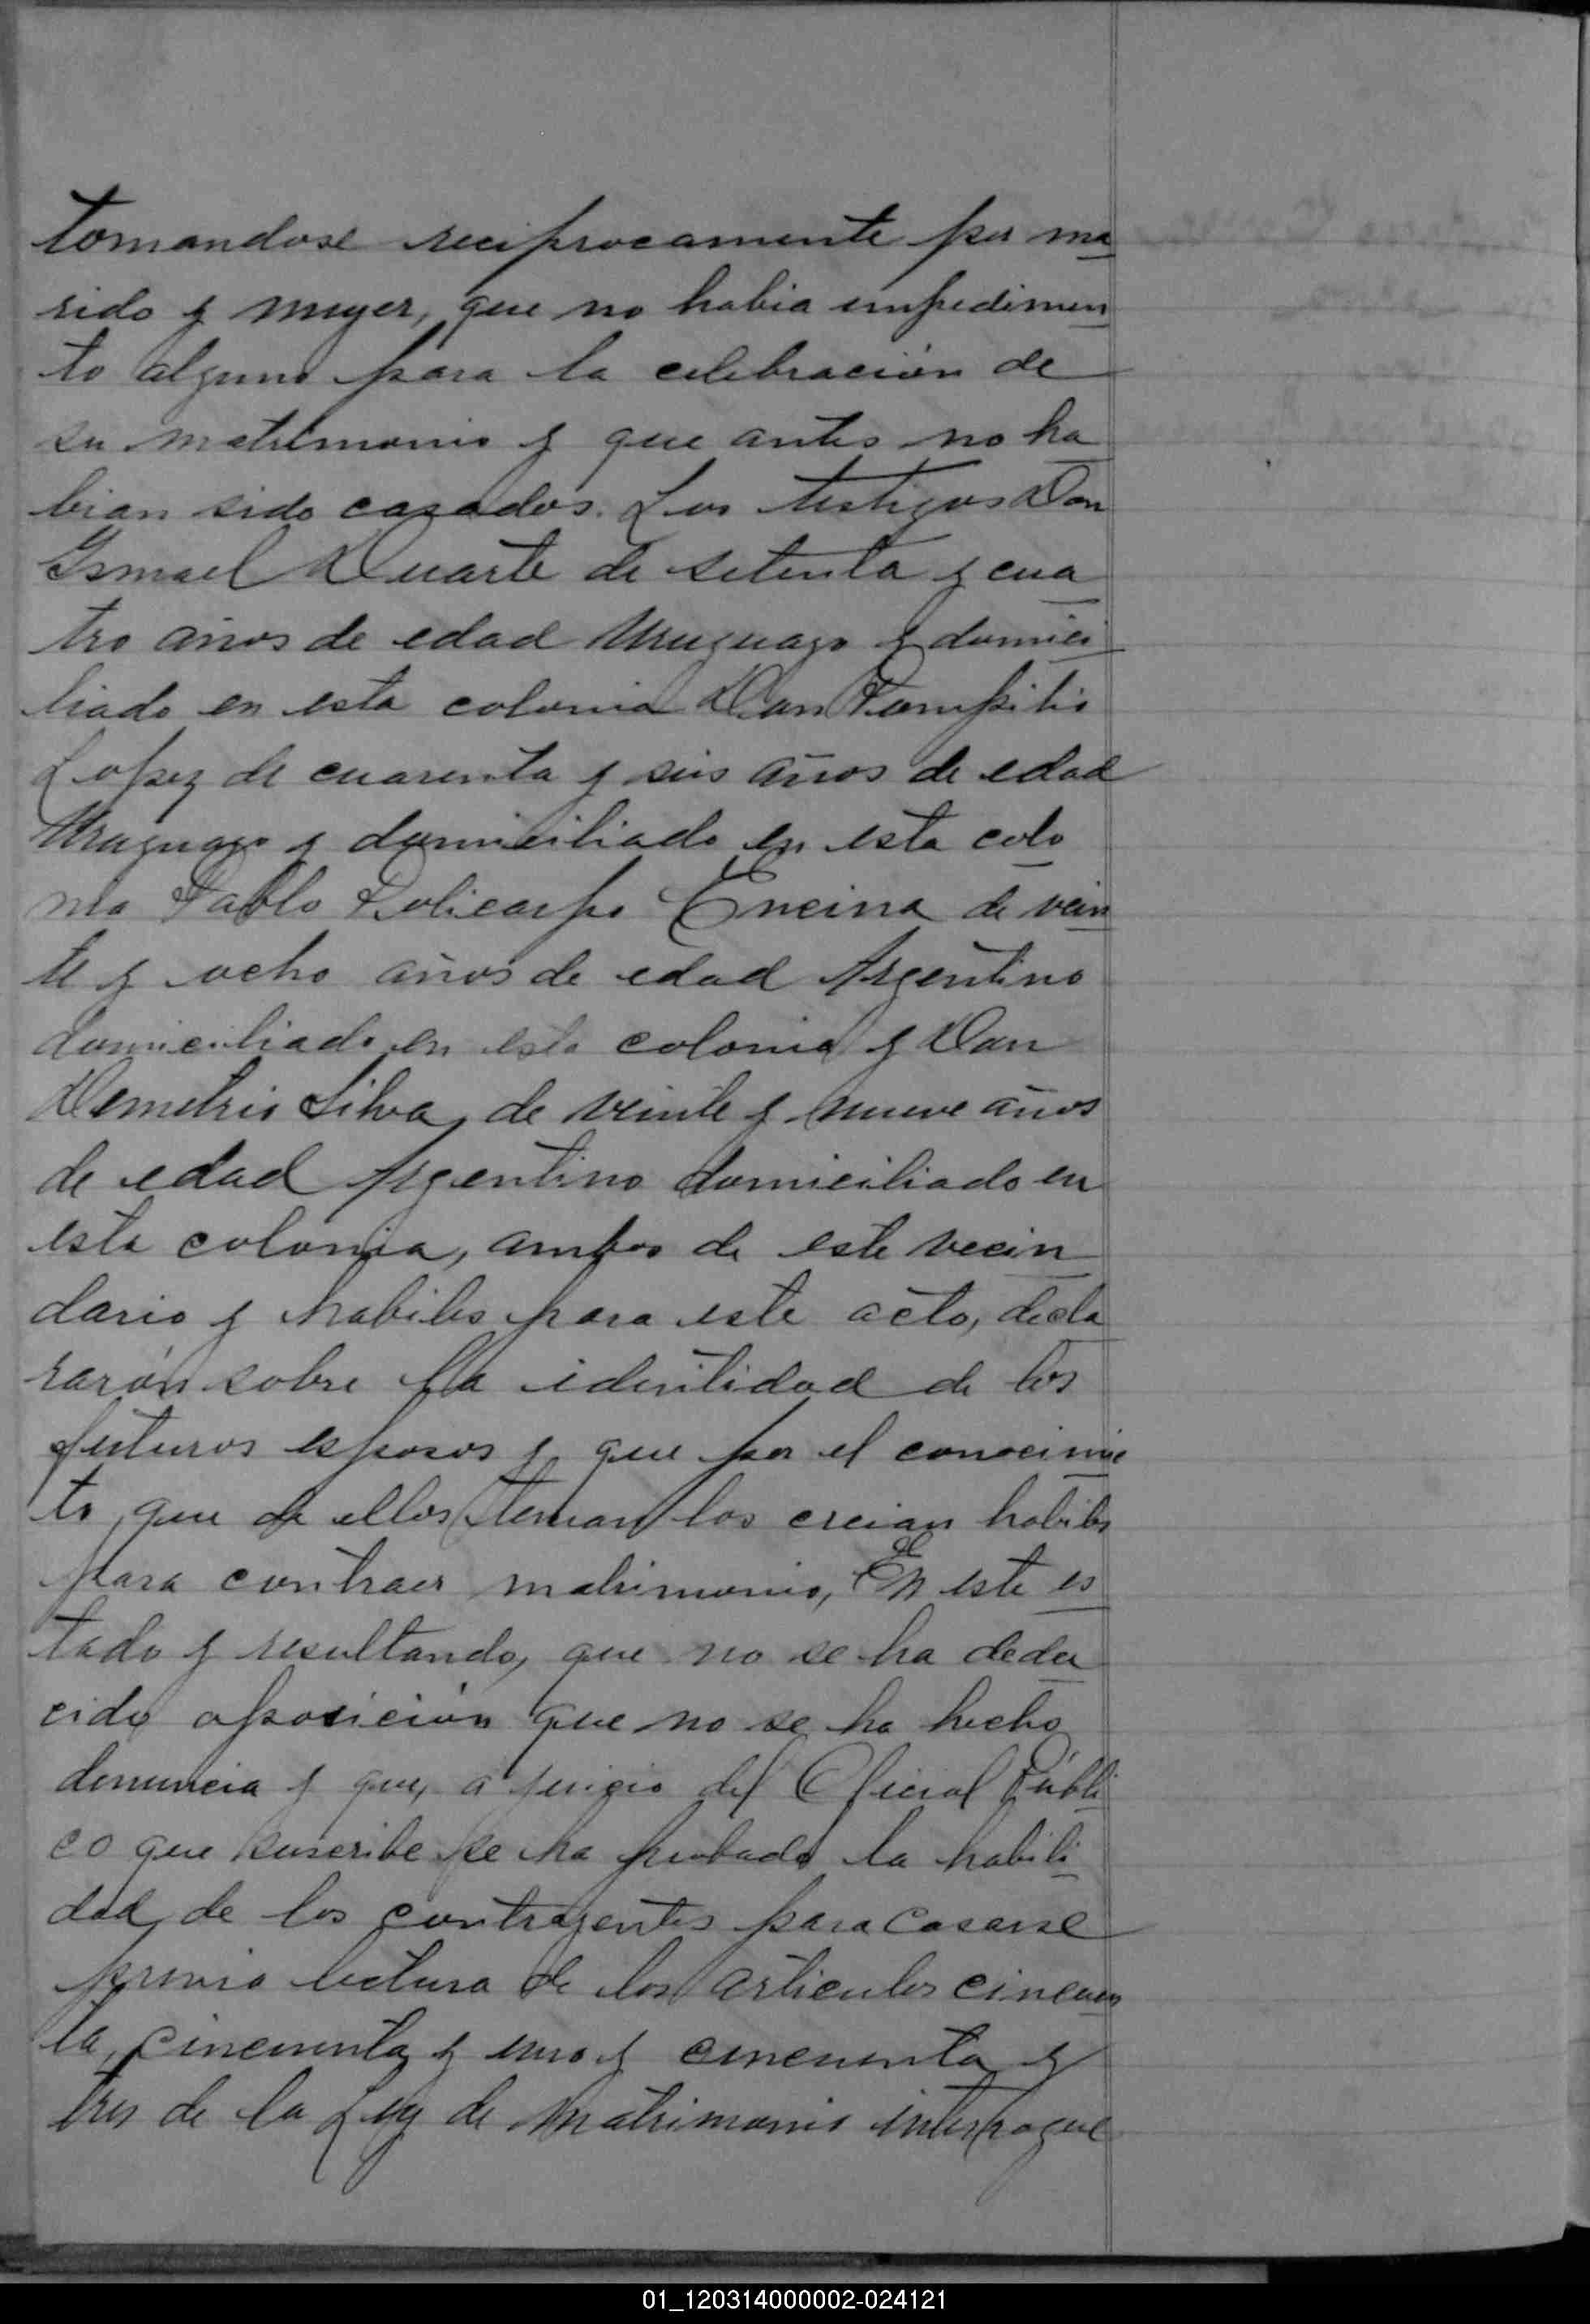 tomandose reciprocamente por ma
rido y muger, que no habia impedimen
to alguno para la celebración de
su matrimonio y que antes no ha
bian sido casados. Los testigos Don
Ismael Duarte de setenta y cua
tro años de edad Uruguayo y domici
liado en esta colonia Don Pompilio
Lopez de cuarenta y seis años de edad
Uruguayo y domiciliado en esta colo
nia Pablo Policarpo Encina de vein
te y ocho años de edad Argentino
domiciliado en esta colonia y Don
Demetrio Silva, de veinte y nueve años
de edad Argentino domiciliado en
esta colonia, ambos de este vecin
dario y habiles para este acto, decla
rarón sobre la identidad de los
futuros esposos y que por el conocimie
to, que de ellos tenian los creian habiles
para contraer matrimonio, En este es
tado y resultando, que no se ha dedu
cido oposición que no se ha hecho
denuncia y que, a juicio del Oficial Públi
co que suscribe se ha probado la habili
dad de los contrayentes para casarse
previa lectura de los articulos cincuen
ta, cincuenta y uno y cincuenta y
tres de la Ley de Matrimonio interrogué
01_120314000002-024121